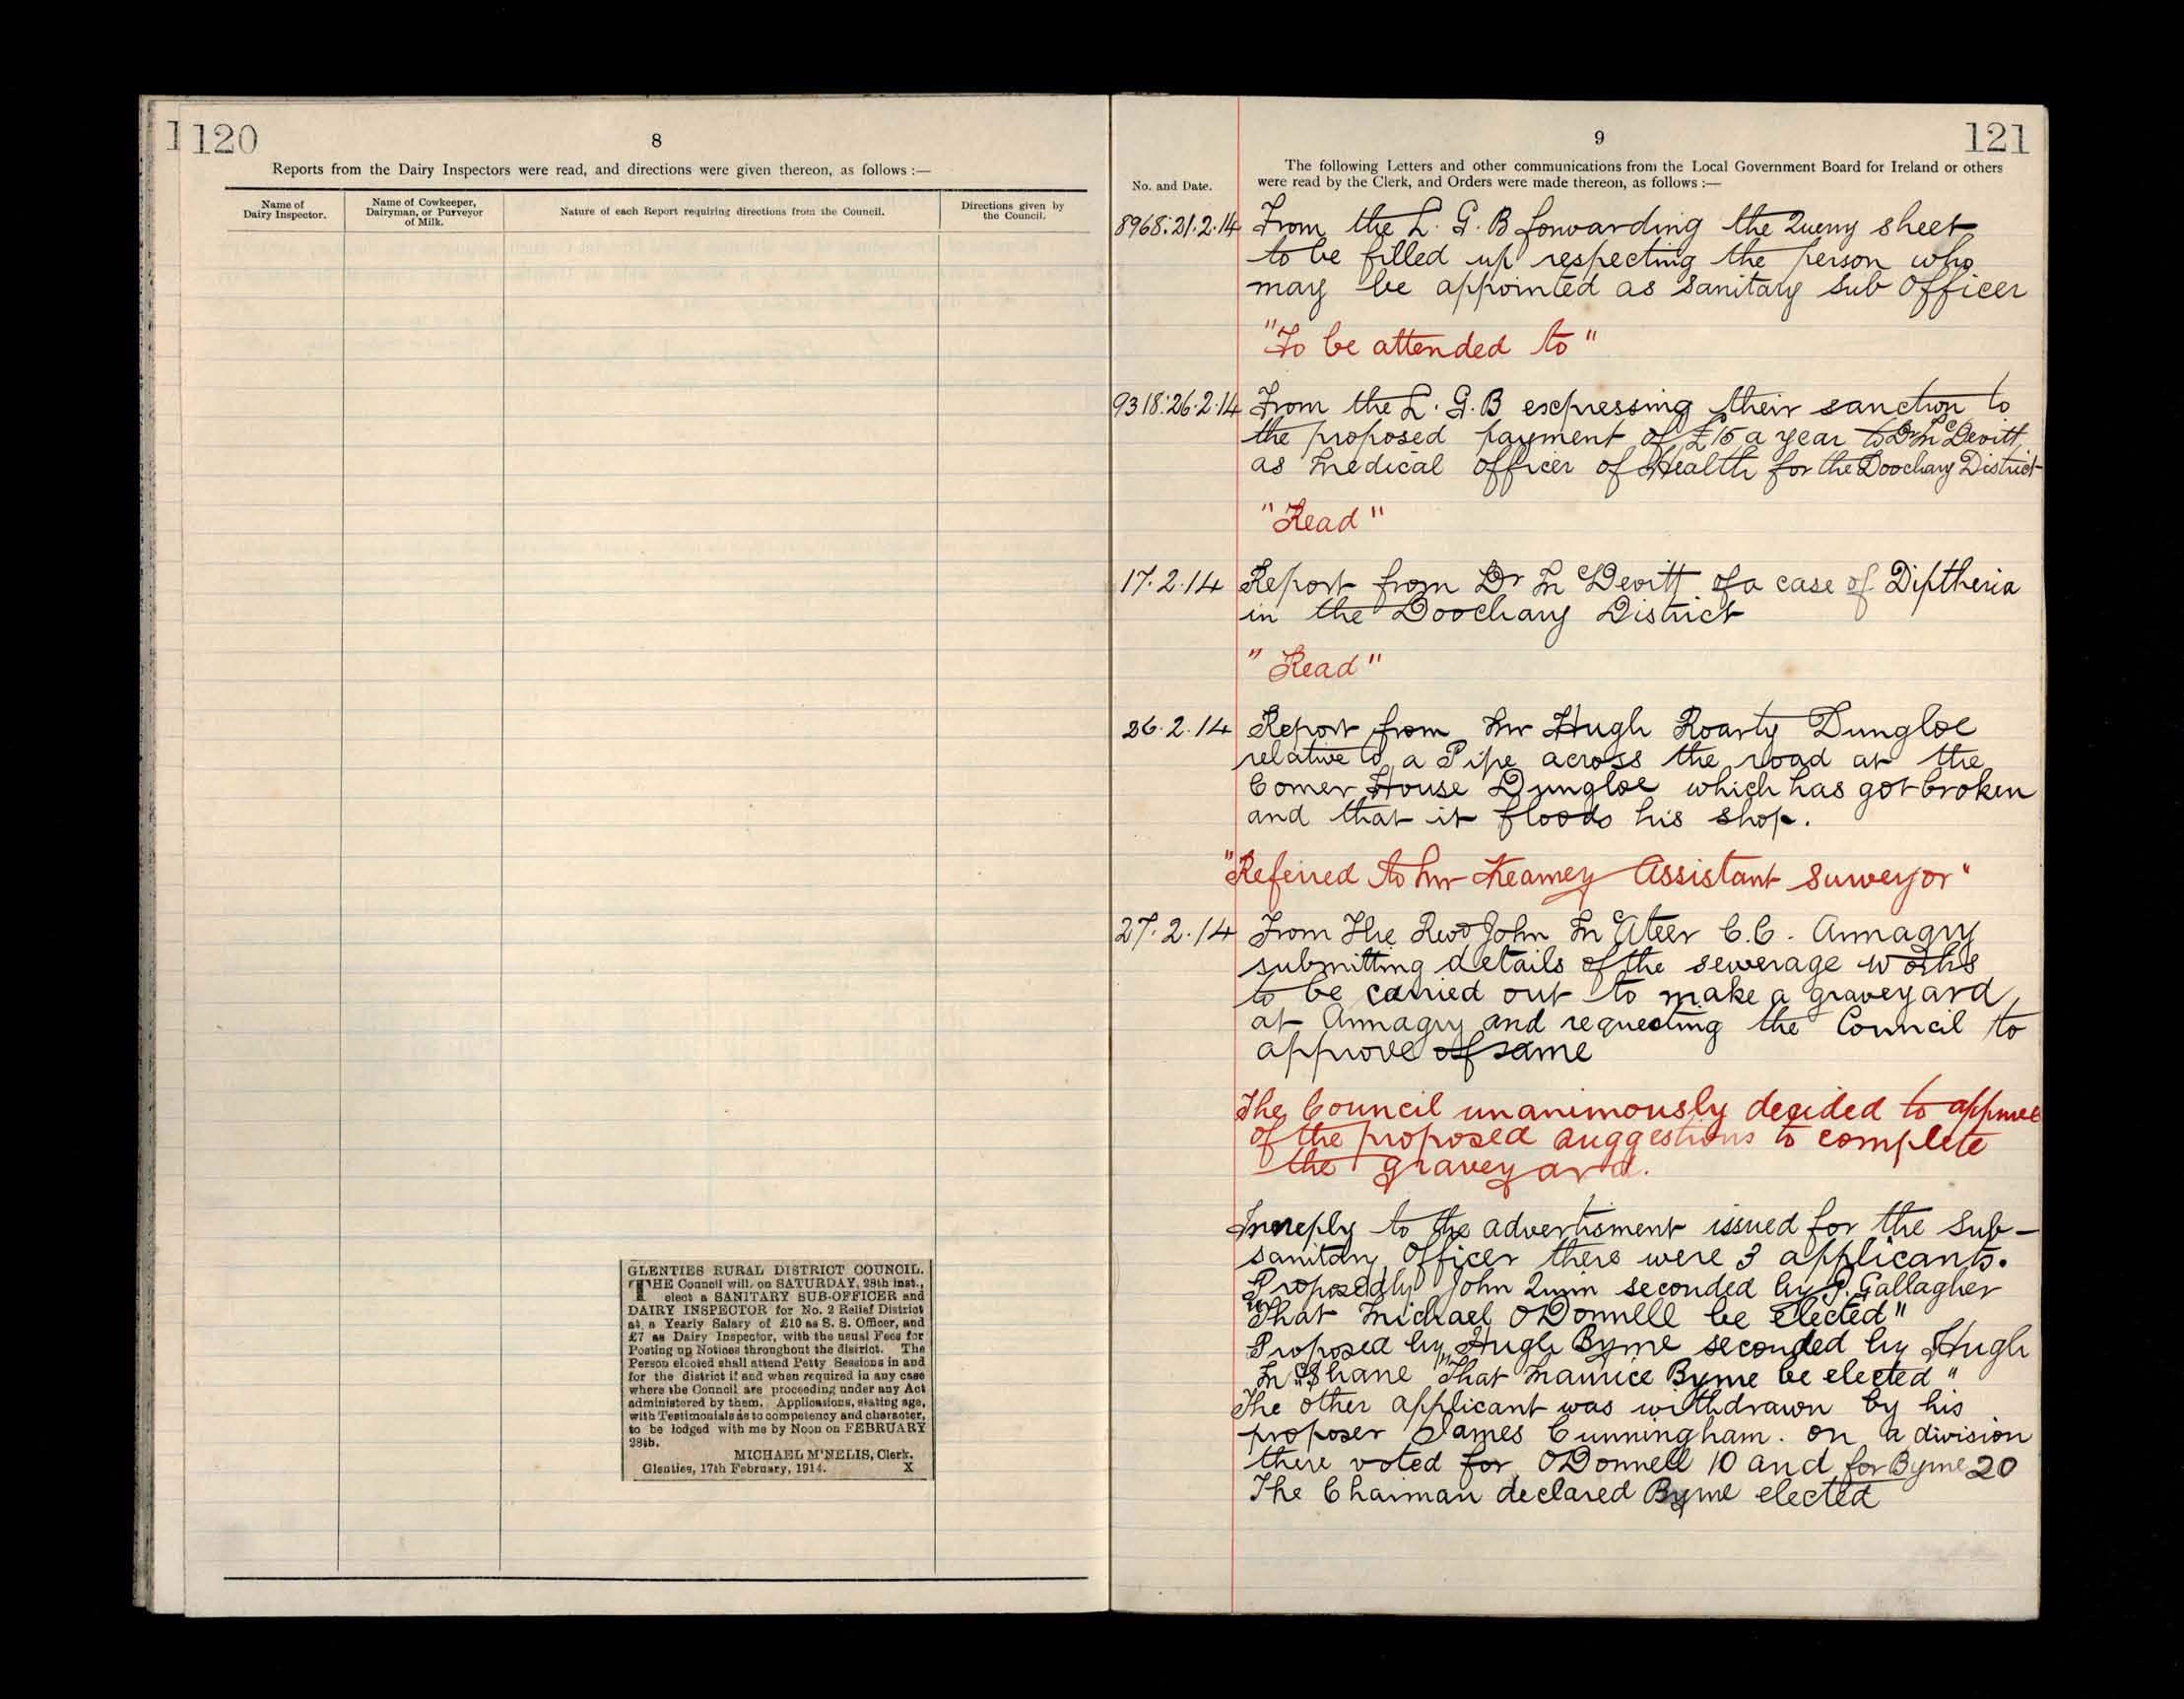 1 120
8
Reports from the Dairy Inspectors were read, and directions were given thereon, as follows :—
Name of
Dairy Inspector.
Name of Cowkeeper,
Dairyman, or Purveyor
of Milk.
Nature of each Report requiring directions from the Council.
Directions given by
the Council.
GLENTIES RURAL DISTRICT COUNCIL.
THE Council will, on SATURDAY, 28th inst.,
elect a SANITARY SUB-OFFICER and
DAIRY INSPECTOR for No. 2 Relief District
at a Yearly Salary of £10 as S. S. Officer, and
£7 as Dairy Inspector, with the usual Fees for
Posting up Notices throughout the district. The
Person elected shall attend Petty Sessions in and
for the district if and when required in any case
where the Council are proceeding under any Act
administered by them. Applications, stating age,
with Testimonials as to competency and character,
to be lodged with me by Noon on FEBRUARY
28th.
MICHAEL M'NELIS, Clerk.
Glenties, 17th February, 1914. X
9
121
The following Letters and other communications from the Local Government Board for Ireland or others
were read by the Clerk, and Orders were made thereon, as follows :—
No. and Date.
8968:21.2.14 From the L. G. B forwarding the Query sheet
to be filled up respecting the person who
may be appointed as Sanitary Sub Officer
"To be attended to"
9318:26.2.14 From the L. G. B expressing their sanction to
the proposed payment of £15 a year to Dr McDevitt
as Medical Officer of Health for the Doochary District
"Read"
17.2.14 Report from Dr McDevitt of a case of Diptheria
in the Doochary District
"Read"
26.2.14 Report from Mr Hugh Roarty Dungloe
relative to a Pipe across the road at the
Corner House Dungloe which has got broken
and that it floods his shop.
"Referred to Mr Kearney Assistant Surveyor"
27.2.14 From The Revd John McAteer C.C. Annagry
submitting details of the sewerage works
to be carried out to make a graveyard
at Annagry and requesting the Council to
approve of same
The Council unanimously decided to approve
of the proposed suggestions to complete
the graveyard.
In reply to the advertisment issued for the Sub-
sanitary Officer there were 3 applicants.
Proposed by John Quin seconded by P. Gallagher
"That Michael ODonnell be elected"
Proposed by Hugh Byrne seconded by Hugh
McShane "That Maurice Byrne be elected"
The other applicant was withdrawn by his
proposer James Cunningham. on a division
there voted for ODonnell 10 and for Byrne 20
The Chairman declared Byrne elected